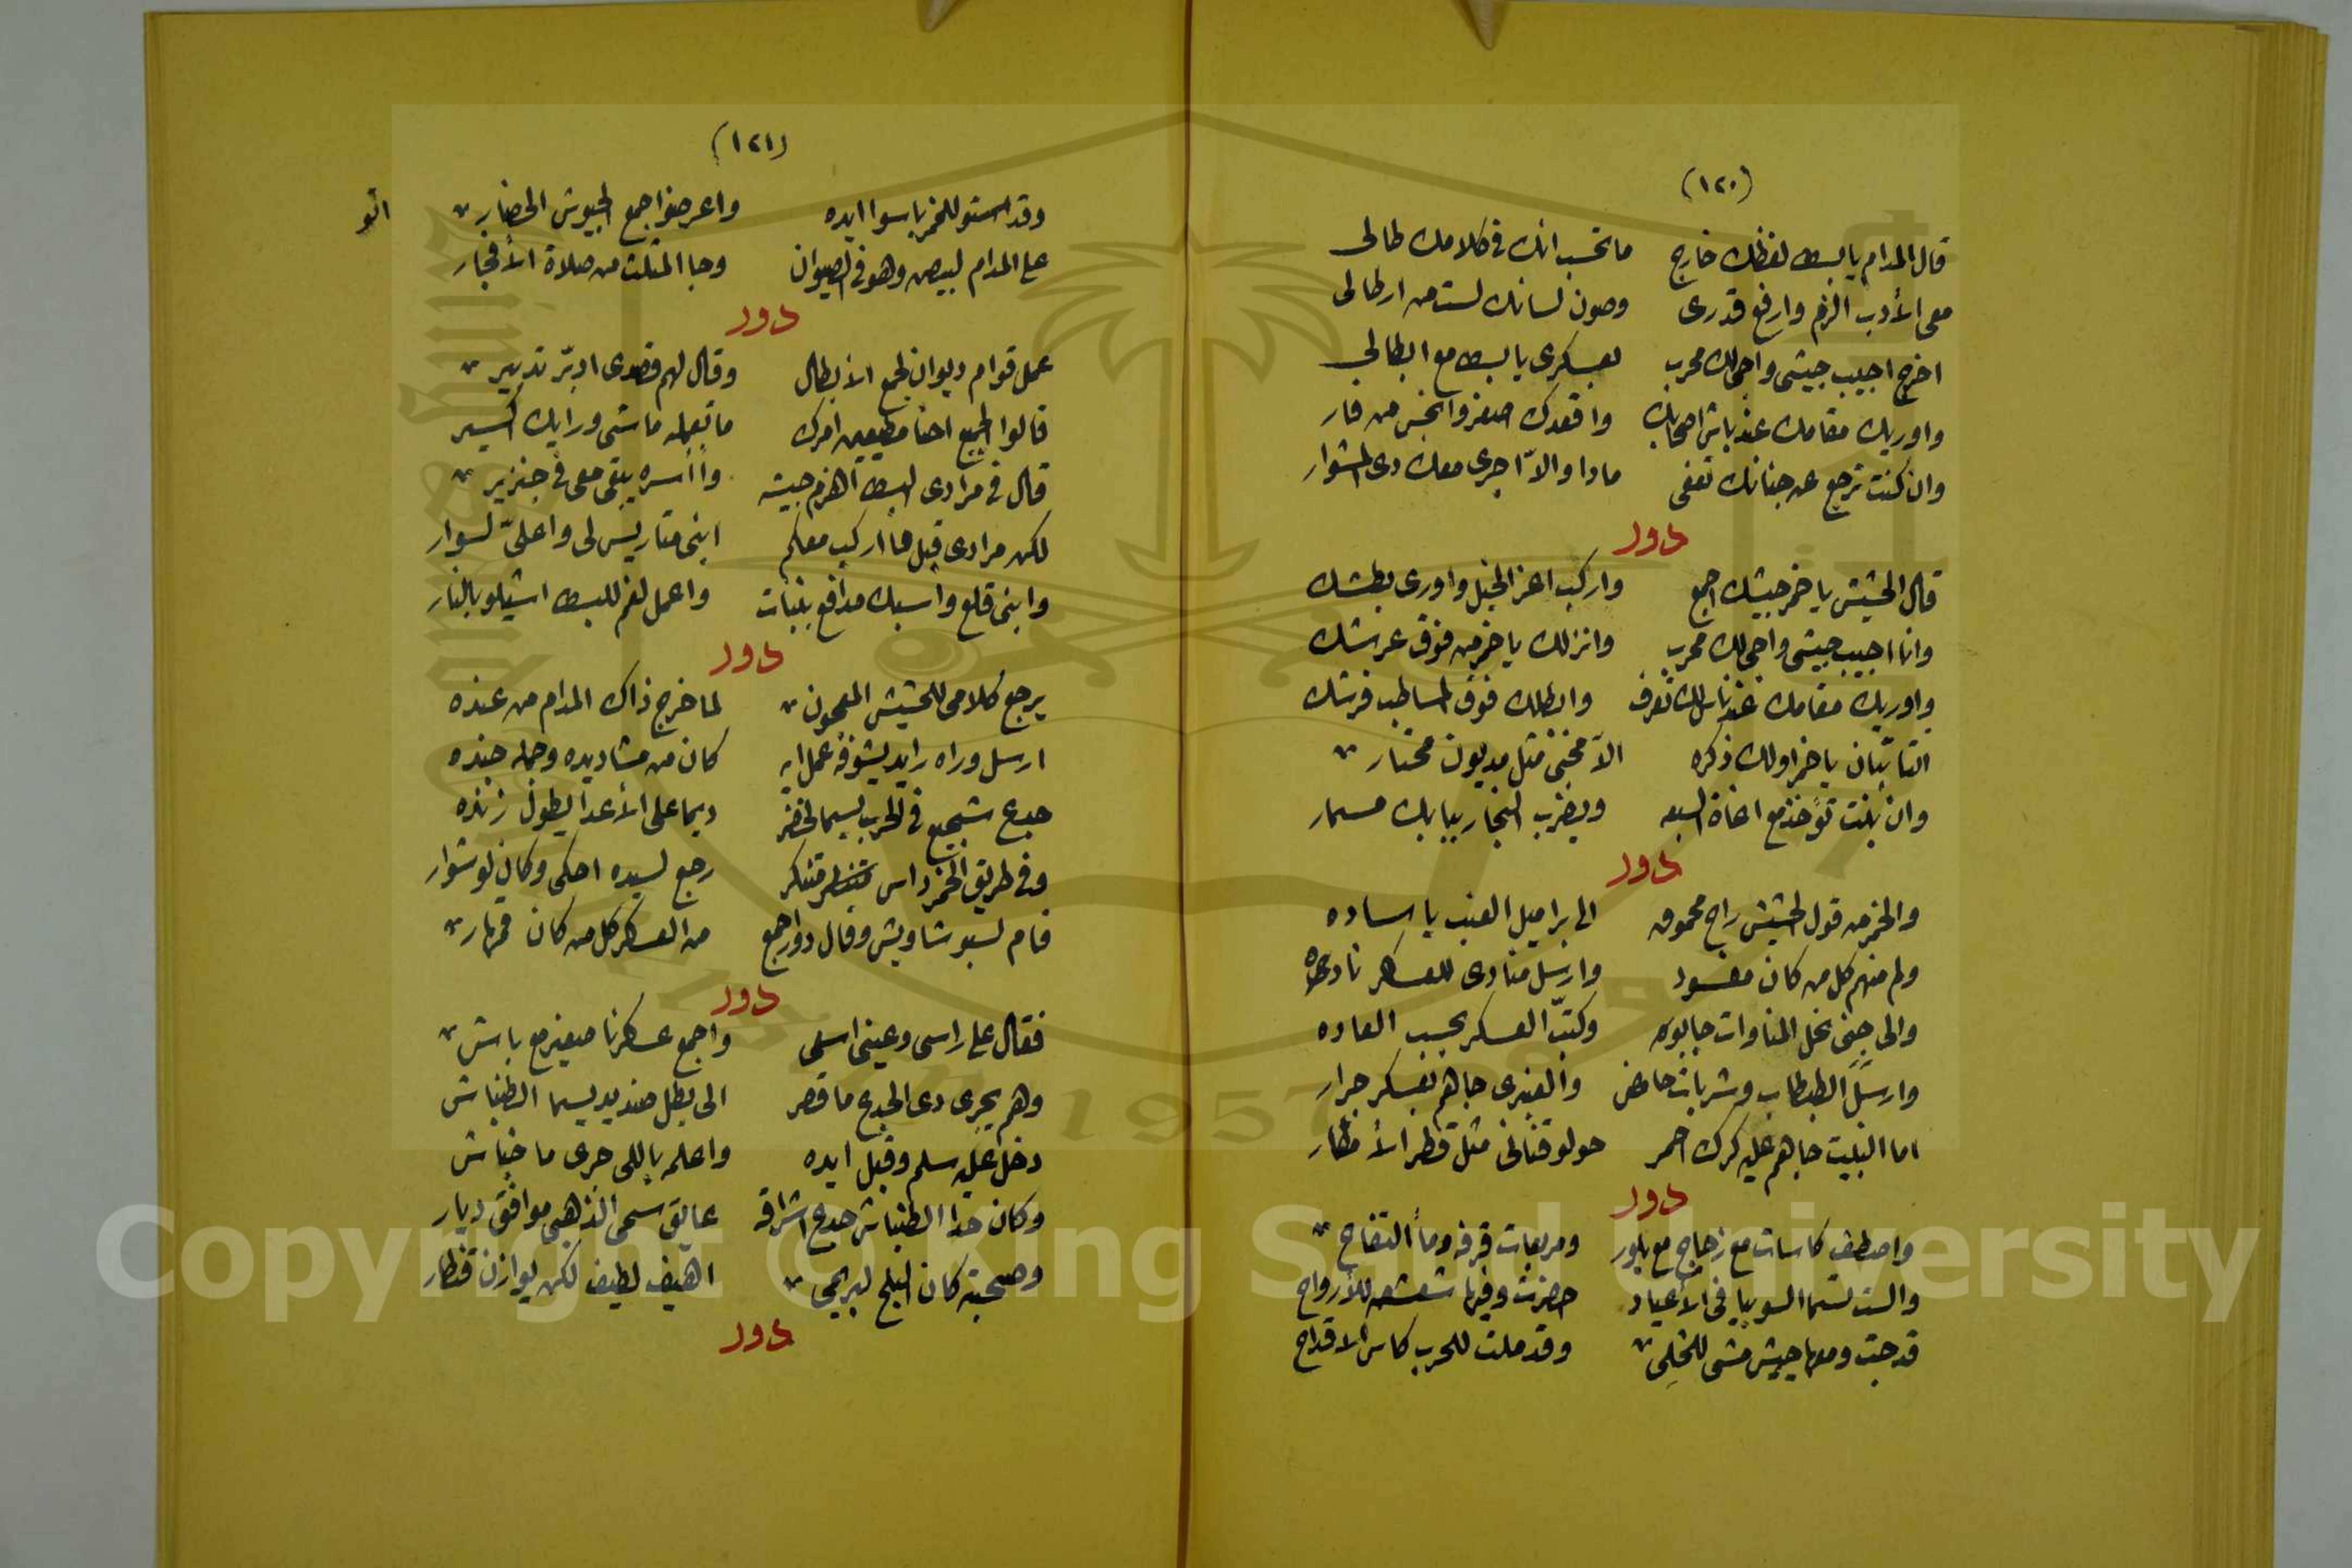 (١٢٠)
قال المدام يا بسط لفظك خارج ما تحسب انك في كلامك طالى
معى الأدب الزم وارفع قدرى وصون لسانك لست من ارطالى
اخرج اجيب جيشى واجى لك محرب بعسكرى يا بسط مع ابطالى
واوريك مقامك عند باش اصحابك واقعدك اصغر وانجس من فار
وان كنت ترجع عن جنانك تعفى مادا والاّ اجرى معك دى المشوار
دور
قال الحشيش يا خمر جيشك اجمع واركب اعز الخيل واورى بطشك
وانا اجيب جيشى واجى لك محرب وانزلك يا خمر من فوق عرشك
واوريك مقامك عند ناس لك تعرف وابطلك فوق المساطب فرشك
التا يتان يا خمر اولك ذكره الاّ مخبى مثل مديون محتار
وان بنت تؤخذ مع اخاة السبعه ويضرب النجار ببابك مسمار
دور
والخمر من قول الحشيش راح محموق الى براميل العنب يا ساده
ولم منهم كل من كان مفسود وارسل منادى للعسكر نادى
والى جنى نخل المناوات جابوه وكتّب العسكر بحسب العاده
وارسل الطبطاب وشربات حامض والعنبرى جاهم بعسكر جرار
اما النبيت جاهم عليه كرك احمر حولو قنانى مثل قطر الأمطار
دور
واصطف كاسات مع زجاج مع بلور ومربعات قرفه وماً التفاح
والست تسما السوبيا فى الأعياد حضرت وفيها شعشعه للأرواح
قد جت ومعها جيش مشى للتحلى وقد ملت للحرب كاس الاقداح
(١٢١)
وقد استو للخمر باسوا ايده واعرضوا جمع الجيوش الحضار اتو
على المدام لبيصه وهو فى الصيوان وجا المثلث من صلاة الأفجار
دور
عمل قوام ديوان لجمع الأبطال وقال لهم قصدى ادبّر تدبير
قالوا الجميع احنا مطيعين امرك ما تعمله ماشى ورايك اكسير
قال فى مرادى البسط اهزم جيشه وأأسره يبقى معى فى جنزير
لكن مرادى قبل ما اركب معكم ابنى متاريس لى واعلّى لسوار
وابنى قلع واسبك مدافع بنبات واعمل لغم للبسط اشيلو بالنار
دور
يرجع كلامى للحشيش المعجون لما خرج ذاك المدام من عنده
ارسل وراه رايد يشوفه عمل ايه كان من مشاديده وجمله جنده
جدع شجيع فى الحرب يسما لخضر ديما على الأعدا يطول زنده
وفى طريق الخمر داس متنكر رجع لسيده احكى وكان لو شوار
قام لسبو شاويش وقال دور اجمع من العسكر كل من كان قهار
دور
فقال على راسى وعينى اسلمى واجمع عسكرنا صغير مع باش
وهم يجرى دى الجدع ما قصر الى بطل صنديد يسما الطنباش
دخل عليه سلم وقبل ايده واعلمه باللى جرى ما خباش
وكان حدا الطنباش جدع اشراقه عايق سمى الذهبى موافق ديار
وصحبته كان البلح لبريمى اهيف لطيف لكن يوازن قنطار
دور
Copyright © King Saud University
1957